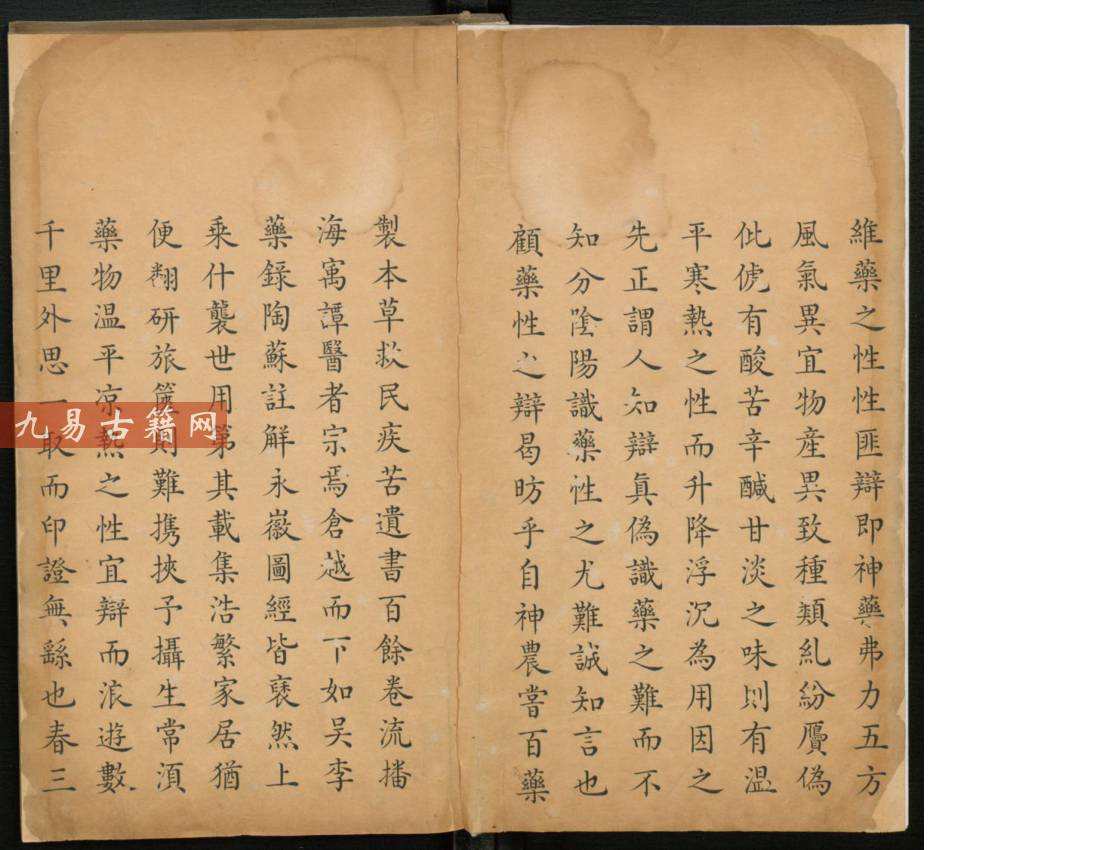 維藥之性性匪辯即神藥弗力五方
風氣異宜物產異致種類糺紛贗偽
仳俿有酸苦辛鹹甘淡之味則有溫
平寒熱之性而升降浮沉為用因之
先正謂人知辯真偽識藥之難而不
知分陰陽識藥性之尤難誠知言也
顧藥性之辯曷昉乎自神農嘗百藥
製本草救民疾苦遺書百餘卷流播
海寓譚醫者宗焉倉越而下如吴李
藥錄陶蘇註解永徽圖經皆裒然上
乘什襲世用第其載集浩繁家居猶
便翻研旅篋則難携挾予攝生常湏
藥物温平凉熱之性宜辯而浪遊數
千里外思一取而印證無繇也春三
九易古籍网